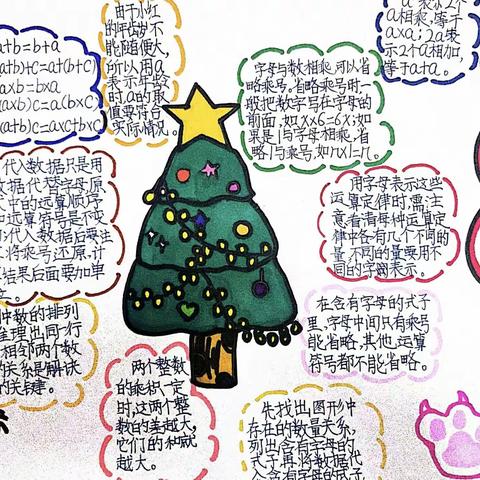 a+b=b+a
(a+b)+c=a+(b+c)
axb=bxa
(axb)xc=ax(bxc)
(a+b)xc=axc+bxc
由于小红
的年龄岁不
能随便大,
所以用a
表示年龄
时,a的取
值要符合
实际情况。
a相乘,等于
axa;2a表
示2个a相加,
等于a+a。
字母与数相乘,可以省
略乘号。省略乘号时一
般把数字写在字母的
前面,如xx6=6x;如
果是1与字母相乘,省
略1与乘号,如nx1=n。
代入数据只是用
数据代替字母,原
式中的运算顺序
和运算符号是不变
代入数据后要注
将乘号还原,计
结果后面要加单
用字母表示这些
运算定律时,需注
意看清每种运算定
律中各有几个不同的
量,不同的量要用不
同的字母表示。
中数的排列
推理出同一行
相邻两个数
的关系是解决
的关键。
在含有字母的式子
里,字母中间只有乘号
能省略,其他运算
符号都不能省略。
两个整数
的乘积一定
时,这两个整
数的差越大,
它们的和就
越大。
先找出图形中
存在的数量关系,
列出含有字母的
式子,再将数据代
入含有字母的式子,